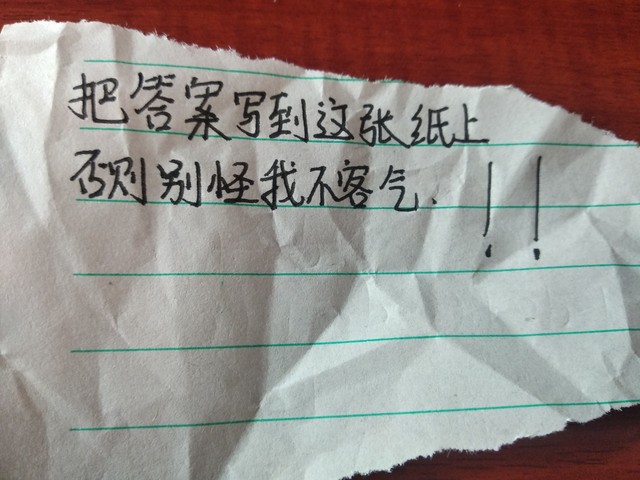 把答案写到这张纸上
否则别怪我不客气.!!